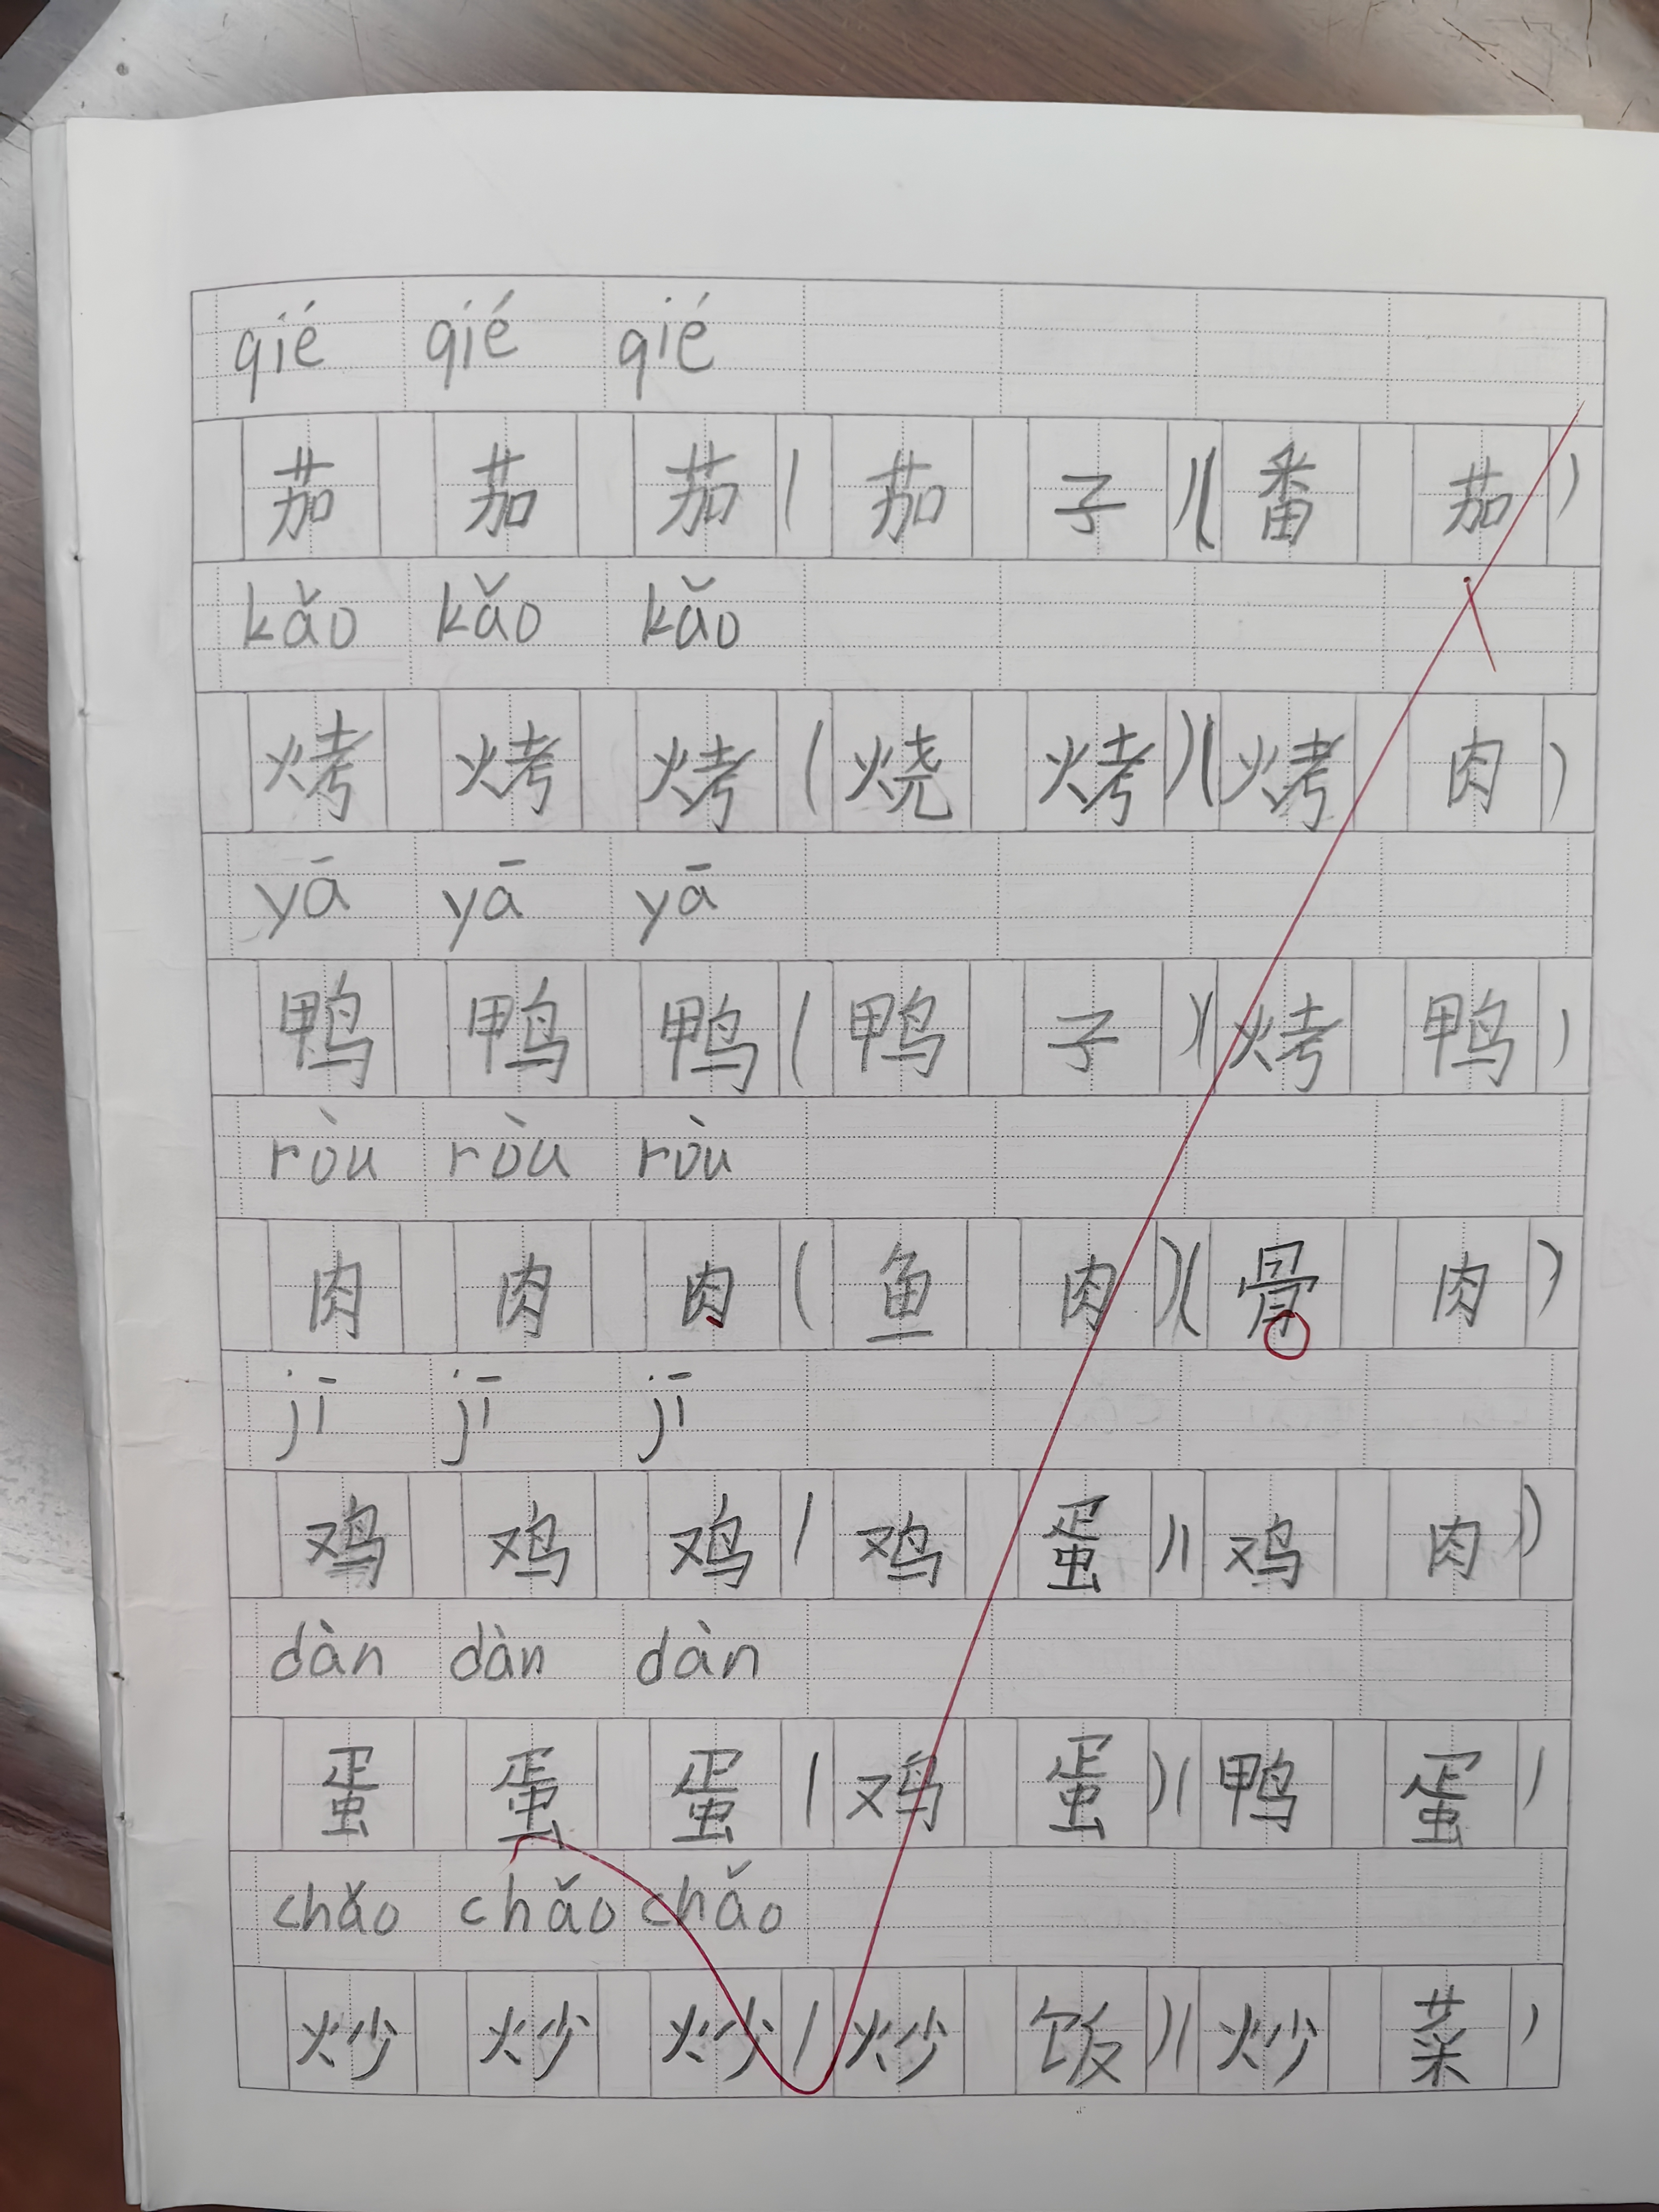 qié qié qié
茄 茄 茄 ( 茄 子 )( 番 茄 )
kǎo kǎo kǎo
烤 烤 烤 ( 烧 烤 )( 烤 肉 )
yā yā yā
鸭 鸭 鸭 ( 鸭 子 )( 烤 鸭 )
ròu ròu ròu
肉 肉 肉 ( 鱼 肉 )( 骨 肉 )
jī jī jī
鸡 鸡 鸡 ( 鸡 蛋 )( 鸡 肉 )
dàn dàn dàn
蛋 蛋 蛋 ( 鸡 蛋 )( 鸭 蛋 )
chǎo chǎo chǎo
炒 炒 炒 ( 炒 饭 )( 炒 菜 )